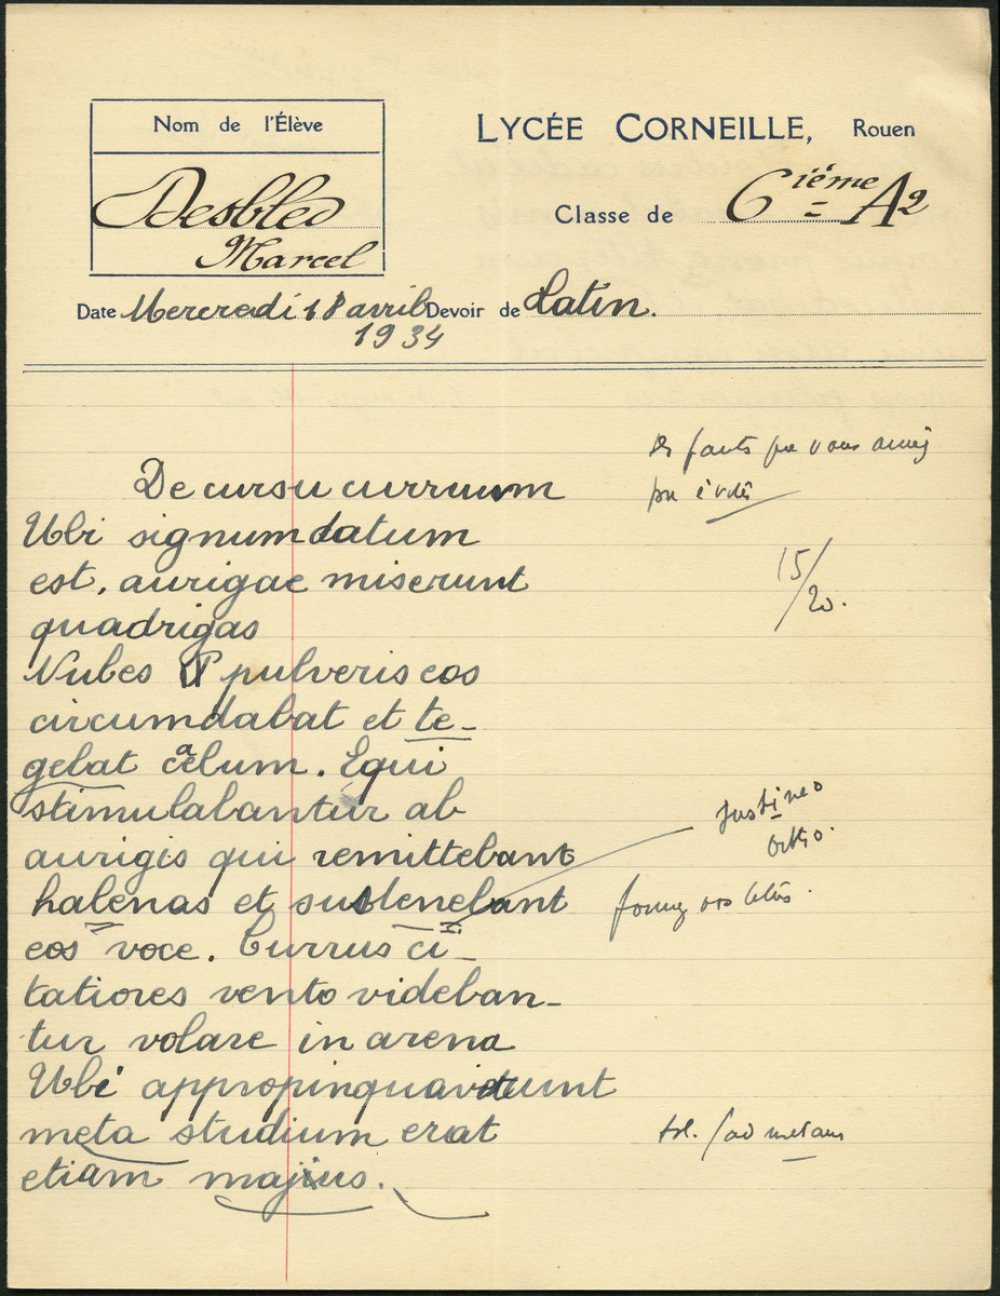 Nom de l'Élève
LYCÉE CORNEILLE, Rouen
Desbled
Marcel
Classe de 6ième A2
Date Mercredi 18 avril Devoir de Latin.
1934
De cursu curruum
Ubi signum datum
est, aurigae miserunt
quadrigas
Nubes pulveris eos
circumdabat et te-
gebat caelum. Equi
stimulabantur ab
aurigis qui remittebant
habenas et sustenebant
eos voce. Currus ci-
tatiores vento videban-
tur volare in arena
Ubi appropinquaverunt
meta studium erat
etiam majus.
Des fautes que vous auriez
pu éviter
15/20.
sustineo
ortho.
formez vos lettres.
sol. / ad metam